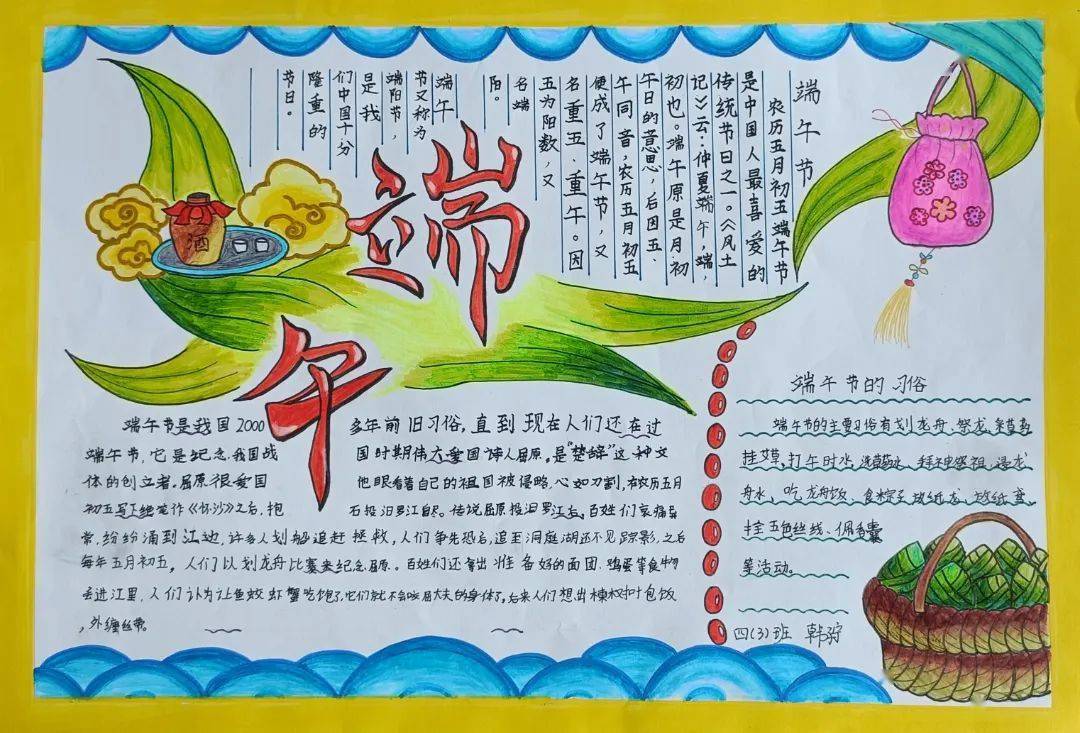 端午节
农历五月初五端午节
是中国人最喜爱的
传统节日之一。《风土
记》云:仲夏端午,端,
初也。端午原是月初
午日的意思,后因五、
午同音,农历五月初五
便成了端午节,又
名重五、重午。因
五为阳数,又
名端
阳。
端午
节又称为
端阳节,
是我
们中国十分
隆重的
节日。
酒
端午
端午节是我国2000多年前旧习俗,直到现在人们还在过
端午节,它是纪念我国战国时期伟大爱国诗人屈原。是“楚辞”这一种文
体的创立者。屈原很爱国他眼看着自己的祖国被侵略,心如刀割,在农历五月
初五写下绝笔作《怀沙》之后,抱石投汨罗江自尽。传说屈原投汨罗江后,百姓们哀痛异
常,纷纷涌到江边,许多人划船追赶拯救,人们争先恐后,追至洞庭湖还不见踪影,之后
每年五月初五,人们以划龙舟比赛来纪念屈原。百姓们还拿出准备好的面团、鸡蛋等食物
丢进江里,人们认为让鱼蛟虾蟹吃饱了,它们就不会咬屈大夫的身体了。后来人们想出楝树叶包饭
,外缠丝带。
端午节的习俗
端午节的主要习俗有划龙舟、祭龙、采草药
挂艾草,打午时水,洗草药水、拜神祭祖、浸龙
舟水、吃龙舟饭、食粽子、放纸龙、放纸鸢
拴五色丝线、佩香囊
等活动。
四(3)班 韩